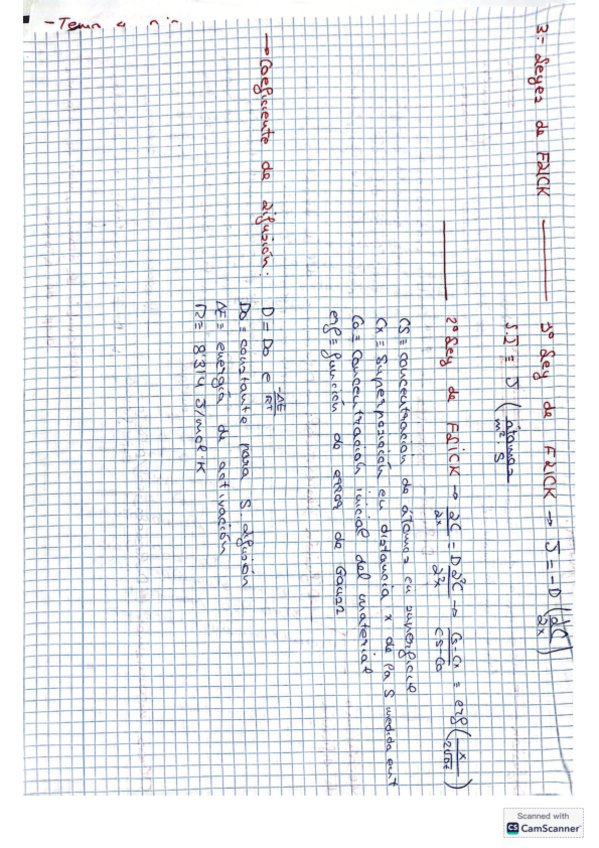 3.- Leyes de FRICK → 1º Ley de FRICK → J = -D (∂C/∂x)
S.I ≡ J (átomos/m²·s)
2º Ley de FRICK → ∂C/∂x = D ∂²C/∂²x → Cs-Cx/Cs-Co = erf(x/2√Dt)
CS = concentración de átomos en superficie
Cx ≡ Superposición en distancia x de la S medida en t
Co = concentración inicial del material
erf = función de error de Gauss
→ Coeficiente de difusión: D = Do e -ΔE/RT
Do = constante para S. difusión
ΔE = energía de activación
R = 8'314 J/mol·K
Scanned with
CS CamScanner